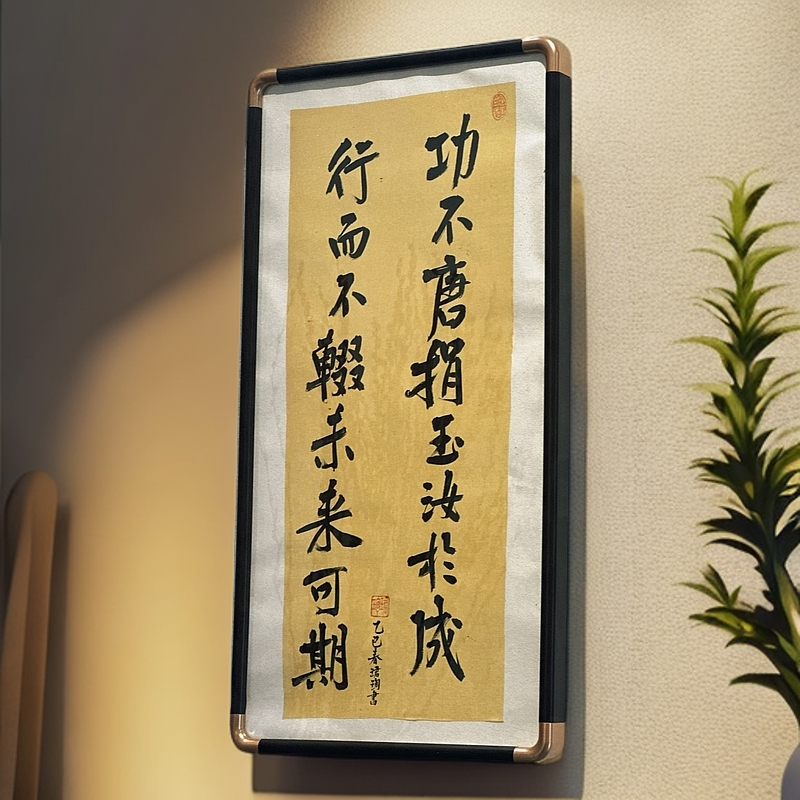 功不唐捐玉汝於成
行而不輟未来可期
乙巳春培翔書